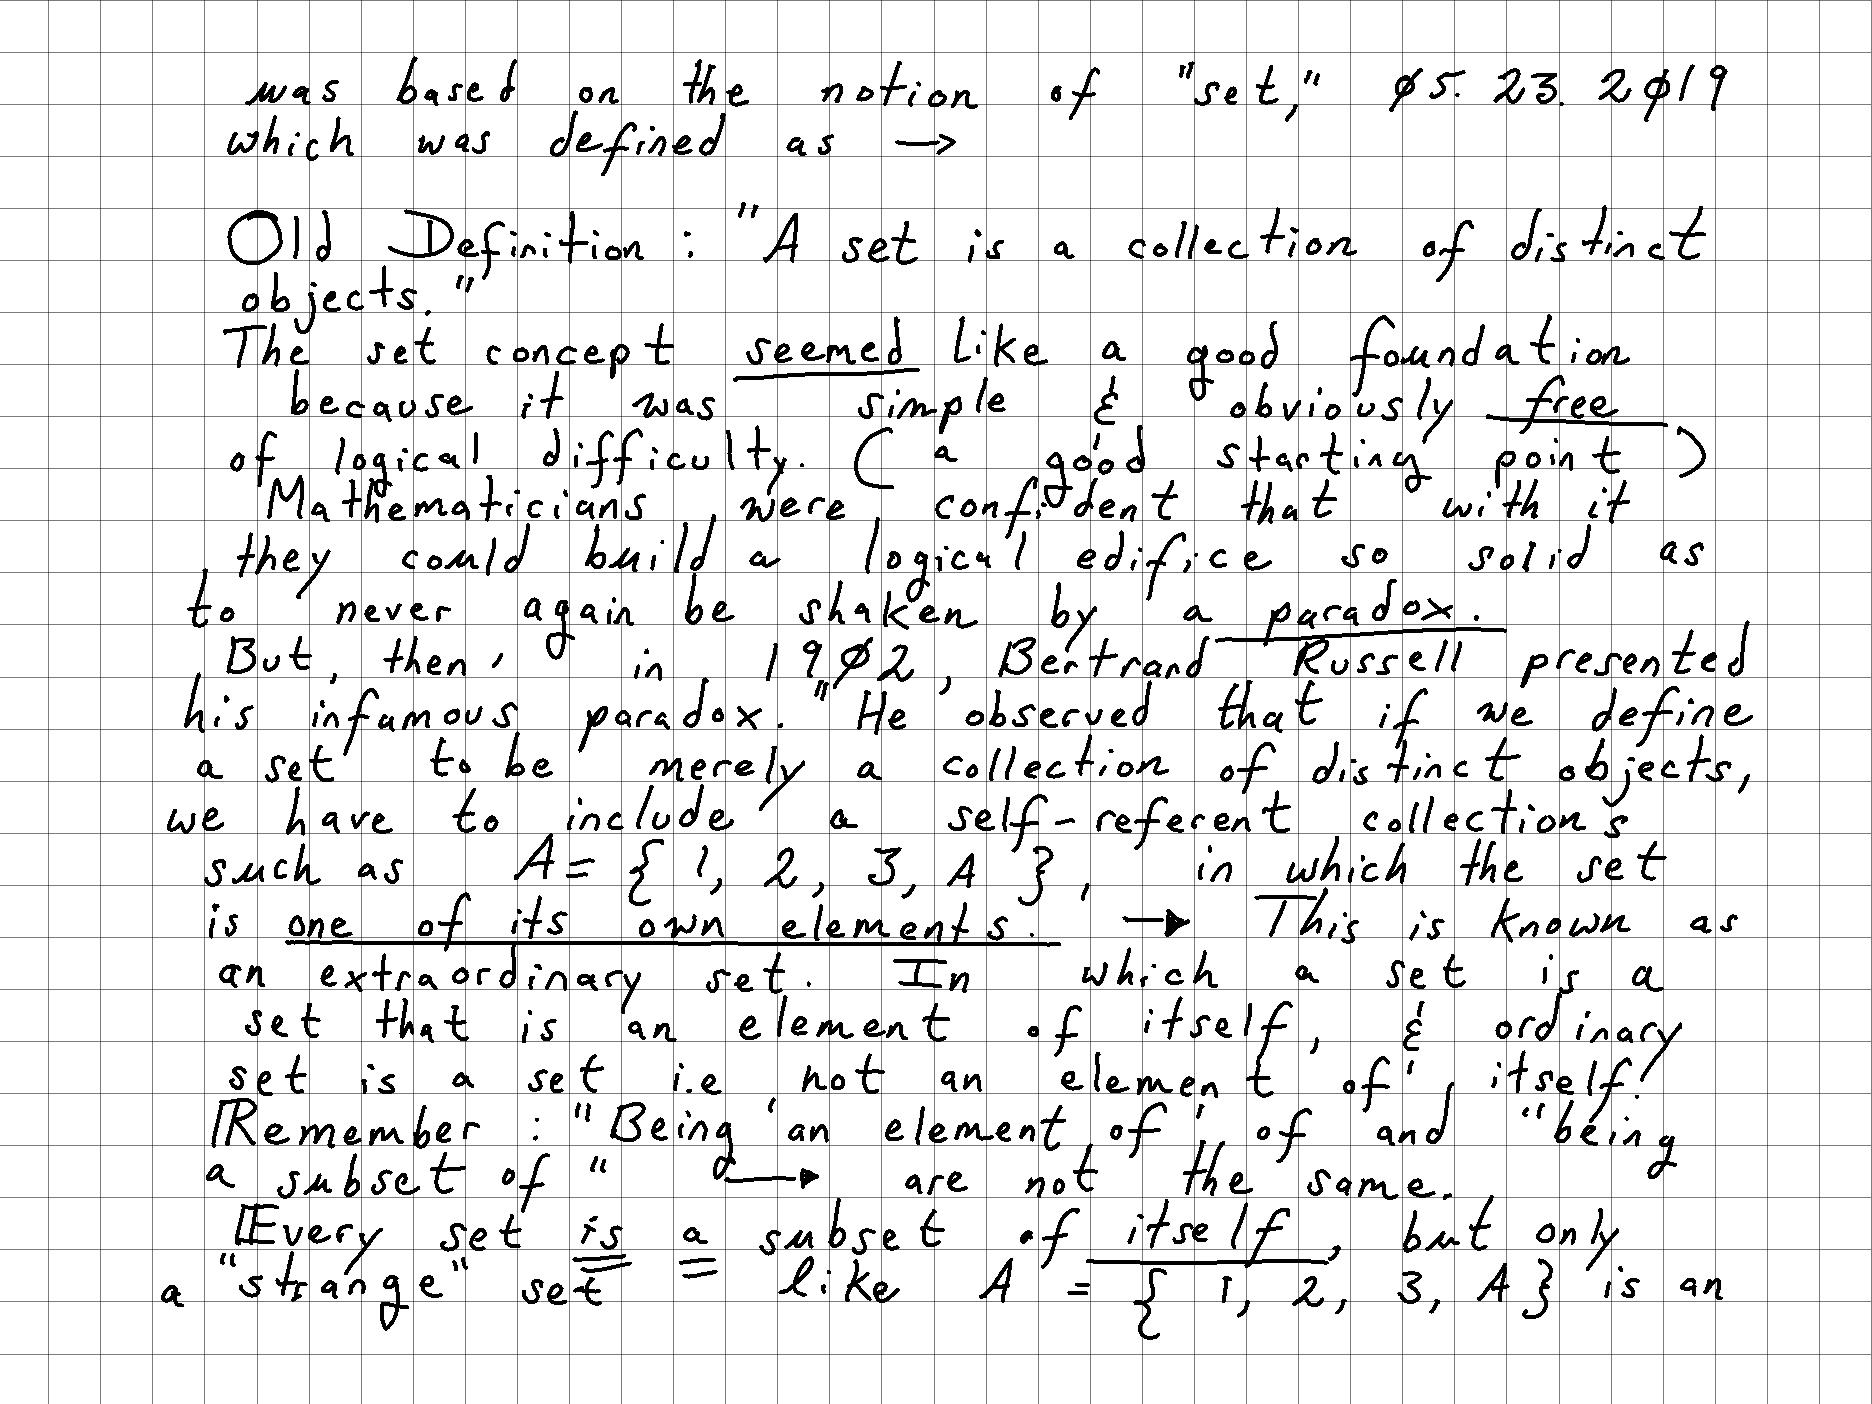 was based on the notion of "set," 05. 23. 2019
which was defined as →
Old Definition : "A set is a collection of distinct
objects."
The set concept seemed like a good foundation
because it was simple & obviously free
of logical difficulty. ( a good starting point )
Mathematicians were confident that with it
they could build a logical edifice so solid as
to never again be shaken by a paradox.
But, then, in 1902, Bertrand Russell presented
his infamous paradox. "He observed that if we define
a set to be merely a collection of distinct objects,
we have to include a self-referent collections
such as A = { 1, 2, 3, A }, in which the set
is one of its own elements. → This is known as
an extraordinary set. In which a set is a
set that is an element of itself, & ordinary
set is a set i.e not an element of itself!
Remember : "Being an element of, of and "being
a subset of " → are not the same.
Every set is a subset of itself, but only
a "strange" set like A = { 1, 2, 3, A } is an